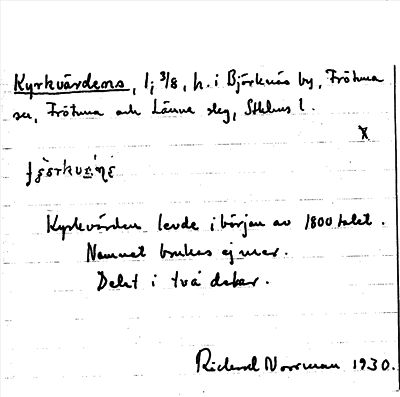 Kyrkvärdens, 1; 3/8, h. i Björknäs by, Frötuna
sn, Frötuna och Länna slg, Sthlms l.
X
Kyrkvärden levde i början av 1800 talet.
Namnet brukas ej mer.
Delat i två delar.
Richard Norrman 1930.